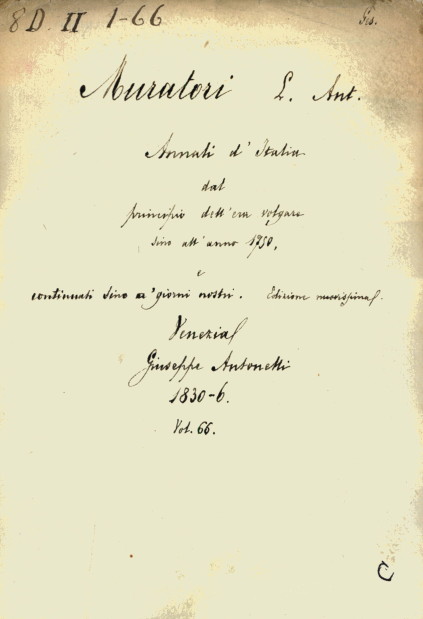 8 D. II 1-66
Gs.
Muratori L. Ant.
Annali d'Italia
dal
principio dell'era volgare
sino all'anno 1750,
e
continuati sino a' giorni nostri. Edizione novissima.
Venezia
Giuseppe Antonelli
1830-6.
Vol. 66.
C